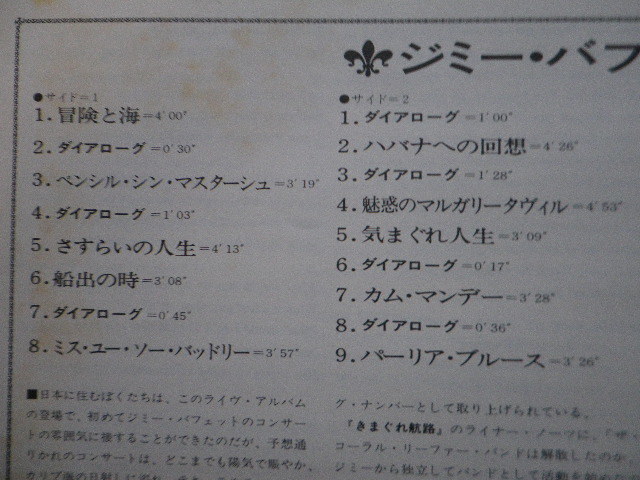 ジミー・バフ
●サイド=1
1.冒険と海=4'00"
2.ダイアローグ=0'30"
3.ペンシル・シン・マスターシュ=3'19"
4.ダイアローグ=1'03"
5.さすらいの人生=4'13"
6.船出の時=3'08"
7.ダイアローグ=0'45"
8.ミス・ユー・ソー・バッドリー=3'57"
●サイド=2
1.ダイアローグ=1'00"
2.ハバナへの回想=4'26"
3.ダイアローグ=1'28"
4.魅惑のマルガリータヴィル=4'53"
5.気まぐれ人生=3'09"
6.ダイアローグ=0'17"
7.カム・マンデー=3'28"
8.ダイアローグ=0'36"
9.パーリア・ブルース=3'26"
■日本に住むぼくたちは、このライヴ・アルバム
の登場で、初めてジミー・バフェットのコンサー
トの雰囲気に接することができたのだが、予想通
りかれのコンサートは、どこまでも陽気で賑やか。
グ・ナンバーとして取り上げられている。
『きまぐれ航路』のライナー・ノーツに、「ザ・
コーラル・リーファー・バンドは解散したのか、
ジミーから独立してバンドとして活動を始めた